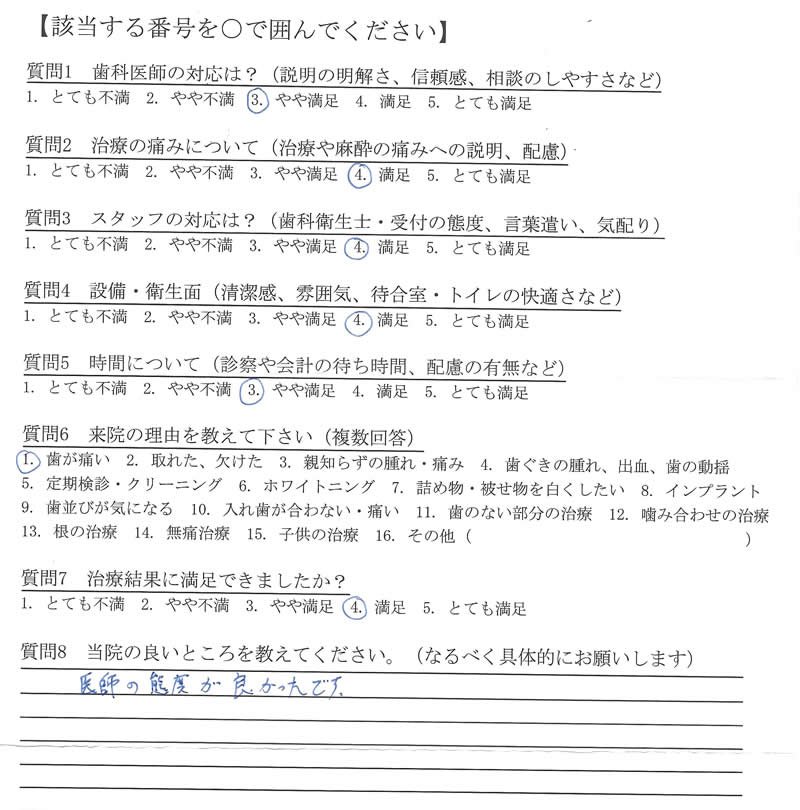 【該当する番号を○で囲んでください】
質問1 歯科医師の対応は？（説明の明解さ、信頼感、相談のしやすさなど）
1. とても不満 2. やや不満 3. やや満足 4. 満足 5. とても満足
質問2 治療の痛みについて（治療や麻酔の痛みへの説明、配慮）
1. とても不満 2. やや不満 3. やや満足 4. 満足 5. とても満足
質問3 スタッフの対応は？（歯科衛生士・受付の態度、言葉遣い、気配り）
1. とても不満 2. やや不満 3. やや満足 4. 満足 5. とても満足
質問4 設備・衛生面（清潔感、雰囲気、待合室・トイレの快適さなど）
1. とても不満 2. やや不満 3. やや満足 4. 満足 5. とても満足
質問5 時間について（診察や会計の待ち時間、配慮の有無など）
1. とても不満 2. やや不満 3. やや満足 4. 満足 5. とても満足
質問6 来院の理由を教えて下さい（複数回答）
1. 歯が痛い 2. 取れた、欠けた 3. 親知らずの腫れ・痛み 4. 歯ぐきの腫れ、出血、歯の動揺
5. 定期検診・クリーニング 6. ホワイトニング 7. 詰め物・被せ物を白くしたい 8. インプラント
9. 歯並びが気になる 10. 入れ歯が合わない・痛い 11. 歯のない部分の治療 12. 噛み合わせの治療
13. 根の治療 14. 無痛治療 15. 子供の治療 16. その他（ ）
質問7 治療結果に満足できましたか？
1. とても不満 2. やや不満 3. やや満足 4. 満足 5. とても満足
質問8 当院の良いところを教えてください。（なるべく具体的にお願いします）
医師の態度が良かったです。